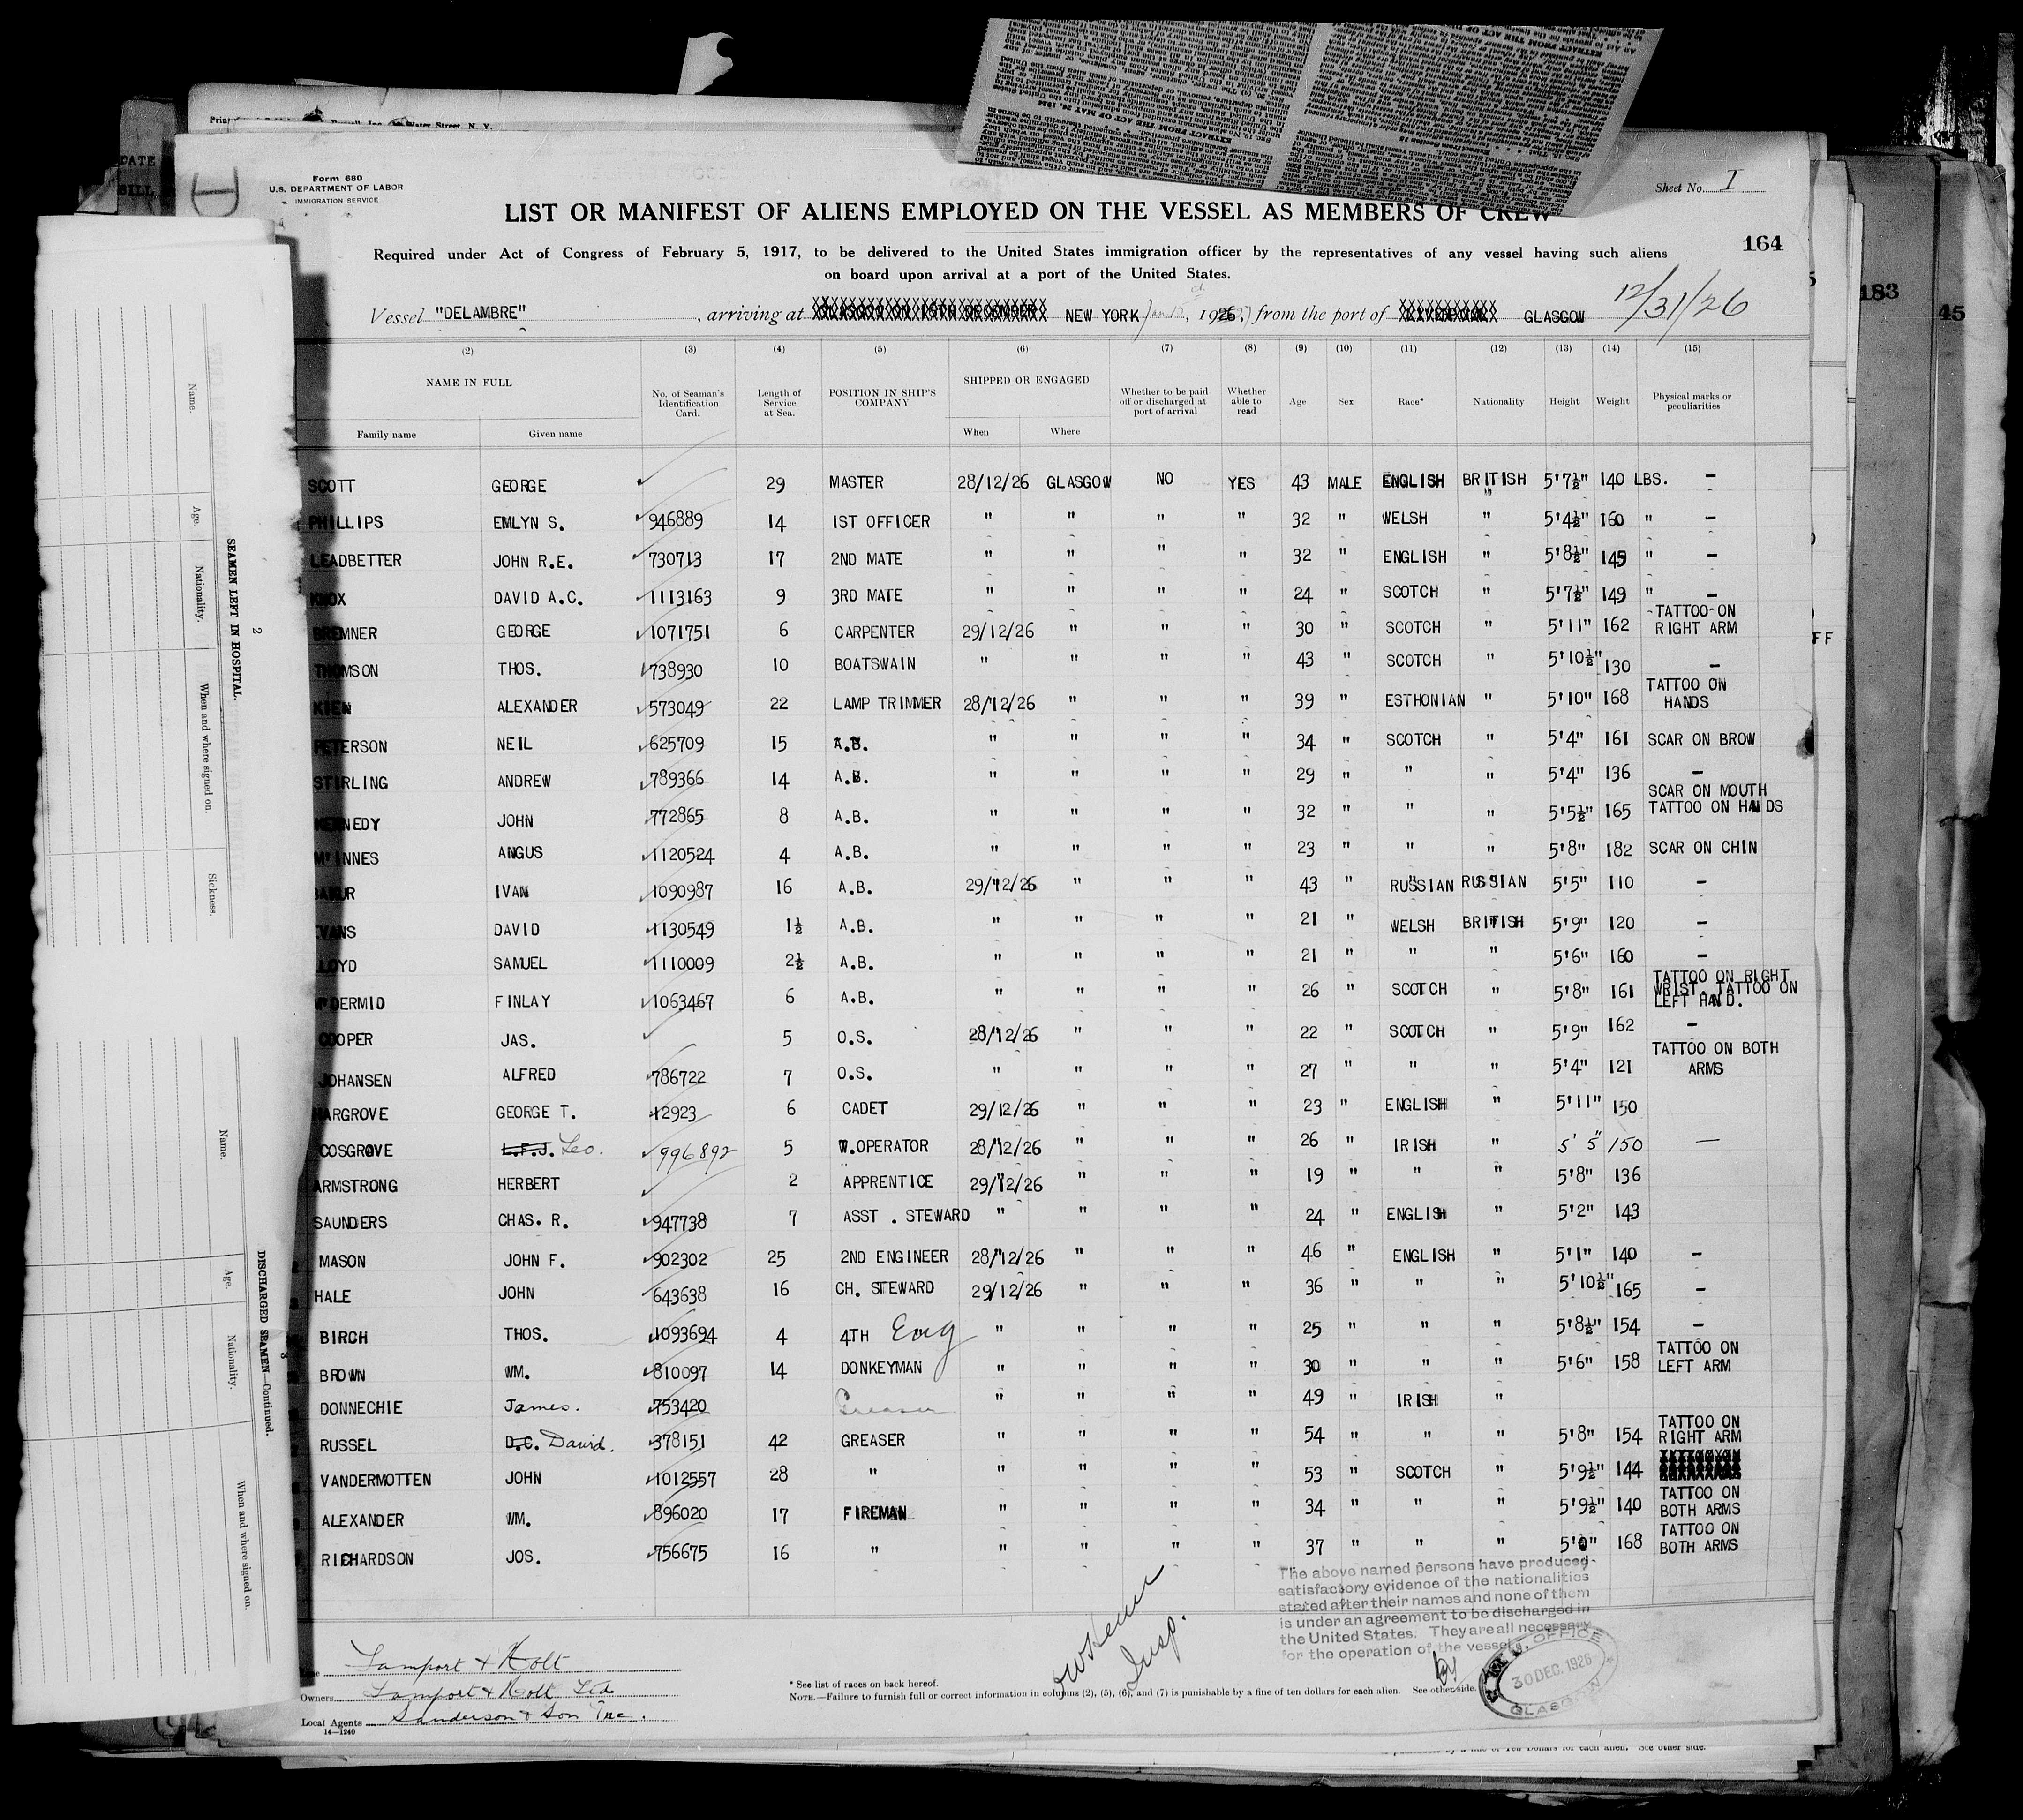 Form 680
U.S. DEPARTMENT OF LABOR
IMMIGRATION SERVICE
Sheet No. I
LIST OR MANIFEST OF ALIENS EMPLOYED ON THE VESSEL AS MEMBERS OF CREW
164
Required under Act of Congress of February 5, 1917, to be delivered to the United States immigration officer by the representatives of any vessel having such aliens
on board upon arrival at a port of the United States.
12/31/26
Vessel "DELAMBRE", arriving at GLASGOW ON 15TH DECEMBER NEW YORK, 1926, from the port of LIVERPOOL GLASGOW
(2) (3) (4) (5) (6) (7) (8) (9) (10) (11) (12) (13) (14) (15)
NAME IN FULL No. of Seaman's Identification Card. Length of Service at Sea. POSITION IN SHIP'S COMPANY SHIPPED OR ENGAGED Whether to be paid off or discharged at port of arrival Whether able to read Age Sex Race* Nationality Height Weight Physical marks or peculiarities
Family name Given name When Where
SCOTT GEORGE 29 MASTER 28/12/26 GLASGOW NO YES 43 MALE ENGLISH BRITISH 5'7½" 140 LBS. -
PHILLIPS EMLYN S. 946889 14 1ST OFFICER " " " " 32 " WELSH " 5'4½" 160 " -
LEADBETTER JOHN R.E. 730713 17 2ND MATE " " " " 32 " ENGLISH " 5'8½" 145 " -
KNOX DAVID A.C. 1113163 9 3RD MATE " " " " 24 " SCOTCH " 5'7½" 149 " -
BREMNER GEORGE 1071751 6 CARPENTER 29/12/26 " " " 30 " SCOTCH " 5'11" 162 TATTOO-ON RIGHT ARM
THOMSON THOS. 738930 10 BOATSWAIN " " " " 43 " SCOTCH " 5'10½" 130 -
KIEN ALEXANDER 573049 22 LAMP TRIMMER 28/12/26 " " " 39 " ESTHONIAN " 5'10" 168 TATTOO ON HANDS
PETERSON NEIL 625709 15 A.B. " " " " 34 " SCOTCH " 5'4" 161 SCAR ON BROW
STIRLING ANDREW 789366 14 A.B. " " " " 29 " " " 5'4" 136 -
KENNEDY JOHN 772865 8 A.B. " " " " 32 " " " 5'5½" 165 SCAR ON MOUTH TATTOO ON HANDS
McINNES ANGUS 1120524 4 A.B. " " " " 23 " " " 5'8" 182 SCAR ON CHIN
IVAN 1090987 16 A.B. 29/12/26 " " " 43 " RUSSIAN RUSSIAN 5'5" 110 -
EVANS DAVID 1130549 1½ A.B. " " " " 21 " WELSH BRITISH 5'9" 120 -
LLOYD SAMUEL 1110009 2½ A.B. " " " " 21 " " " 5'6" 160 -
McDERMID FINLAY 1063467 6 A.B. " " " " 26 " SCOTCH " 5'8" 161 TATTOO ON RIGHT WRIST. TATTOO ON LEFT HAND.
COOPER JAS. 5 O.S. 28/12/26 " " " 22 " SCOTCH " 5'9" 162 -
JOHANSEN ALFRED 786722 7 O.S. " " " " 27 " " " 5'4" 121 TATTOO ON BOTH ARMS
HARGROVE GEORGE T. 12923 6 CADET 29/12/26 " " " 23 " ENGLISH " 5'11" 150
COSGROVE L.F.J. Leo. 996892 5 W.OPERATOR 28/12/26 " " " 26 " IRISH " 5' 5" 150 —
ARMSTRONG HERBERT 2 APPRENTICE 29/12/26 " " " 19 " " " 5'8" 136
SAUNDERS CHAS. R. 947738 7 ASST . STEWARD " " " " 24 " ENGLISH " 5'2" 143
MASON JOHN F. 902302 25 2ND ENGINEER 28/12/26 " " " 46 " ENGLISH " 5'1" 140 -
HALE JOHN 643638 16 CH. STEWARD 29/12/26 " " " 36 " " " 5'10½" 165 -
BIRCH THOS. 1093694 4 4TH Eng " " " " 25 " " " 5'8½" 154 -
BROWN WM. 810097 14 DONKEYMAN " " " " 30 " " " 5'6" 158 TATTOO ON LEFT ARM
DONNECHIE James. 753420 Greaser " " " " 49 " IRISH "
RUSSEL D.C. David. 378151 42 GREASER " " " " 54 " " " 5'8" 154 TATTOO ON RIGHT ARM
VANDERMOTTEN JOHN 1012557 28 " " " " " 53 " SCOTCH " 5'9½" 144
ALEXANDER WM. 896020 17 FIREMAN " " " " 34 " " " 5'9½" 140 TATTOO ON BOTH ARMS
RICHARDSON JOS. 756675 16 " " " " " 37 " " " 168 TATTOO ON BOTH ARMS
The above named persons have produced
satisfactory evidence of the nationalities
stated after their names and none of them
is under an agreement to be discharged in
the United States. They are all necessary
for the operation of the vessels.
Insp.
OFFICE
30 DEC. 1926
GLASGOW
Lamport & Holt
Owners Lamport & Holt Ltd
Local Agents Sanderson & Son Inc.
14—1240
* See list of races on back hereof.
NOTE.—Failure to furnish full or correct information in columns (2), (5), (6), and (7) is punishable by a fine of ten dollars for each alien. See other side.
SEAMEN LEFT IN HOSPITAL.
2
Name. Age. Nationality. When and where signed on. Sickness.
DISCHARGED SEAMEN—Continued.
3
Name. Age. Nationality. When and where signed on.
DATE
BILL
Water Street, N. Y.
EXTRACT FROM THE ACT OF MAY 26, 1924
183
45
FF